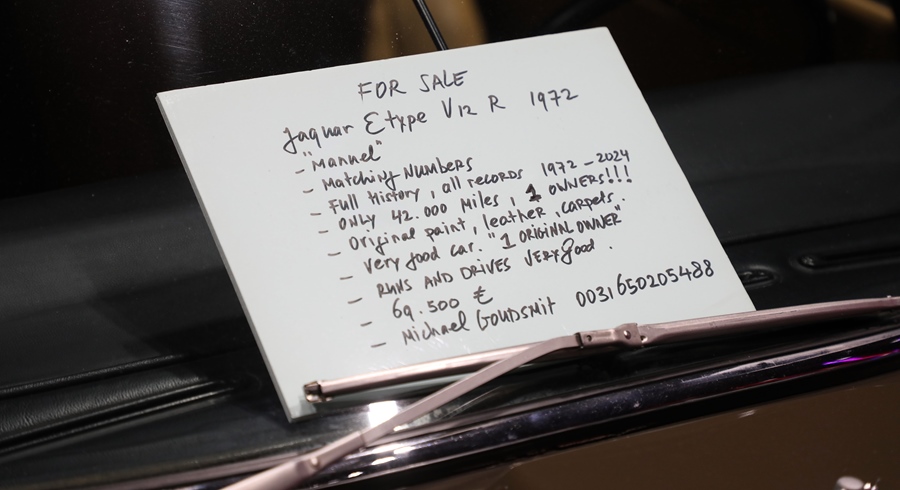 FOR SALE
Jaguar Etype V12 R 1972
- "Manuel"
- Matching NUMBERS
- Full History, all records 1972-2024
- ONLY 42.000 Miles, 1 OWNERS!!!
- Original paint, leather, carpets,.
- Very good car. "1 ORIGINAL OWNER"
- RUNS AND DRIVES VERY good.
- 69.500 €
- Michael GOUDSMIT 0031650205488